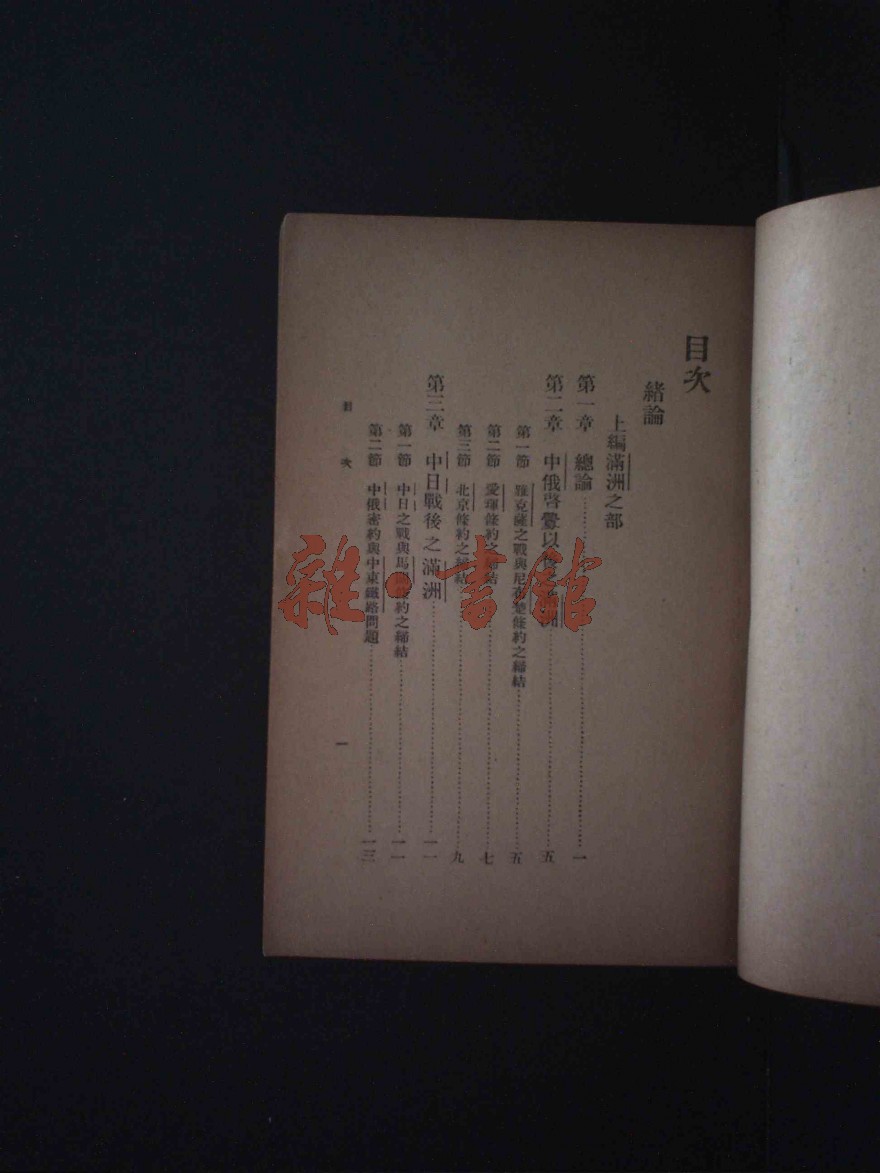 目次
緒論
上編滿洲之部
第一章 總論……一
第二章 中俄啓釁以後之滿洲……五
第一節 雅克薩之戰與尼布楚條約之締結……五
第二節 愛琿條約之締結……七
第三節 北京條約之締結……九
第三章 中日戰後之滿洲……一一
第一節 中日之戰與馬關條約之締結……一一
第二節 中俄密約與中東鐵路問題……一三
目次
一
雜·書館